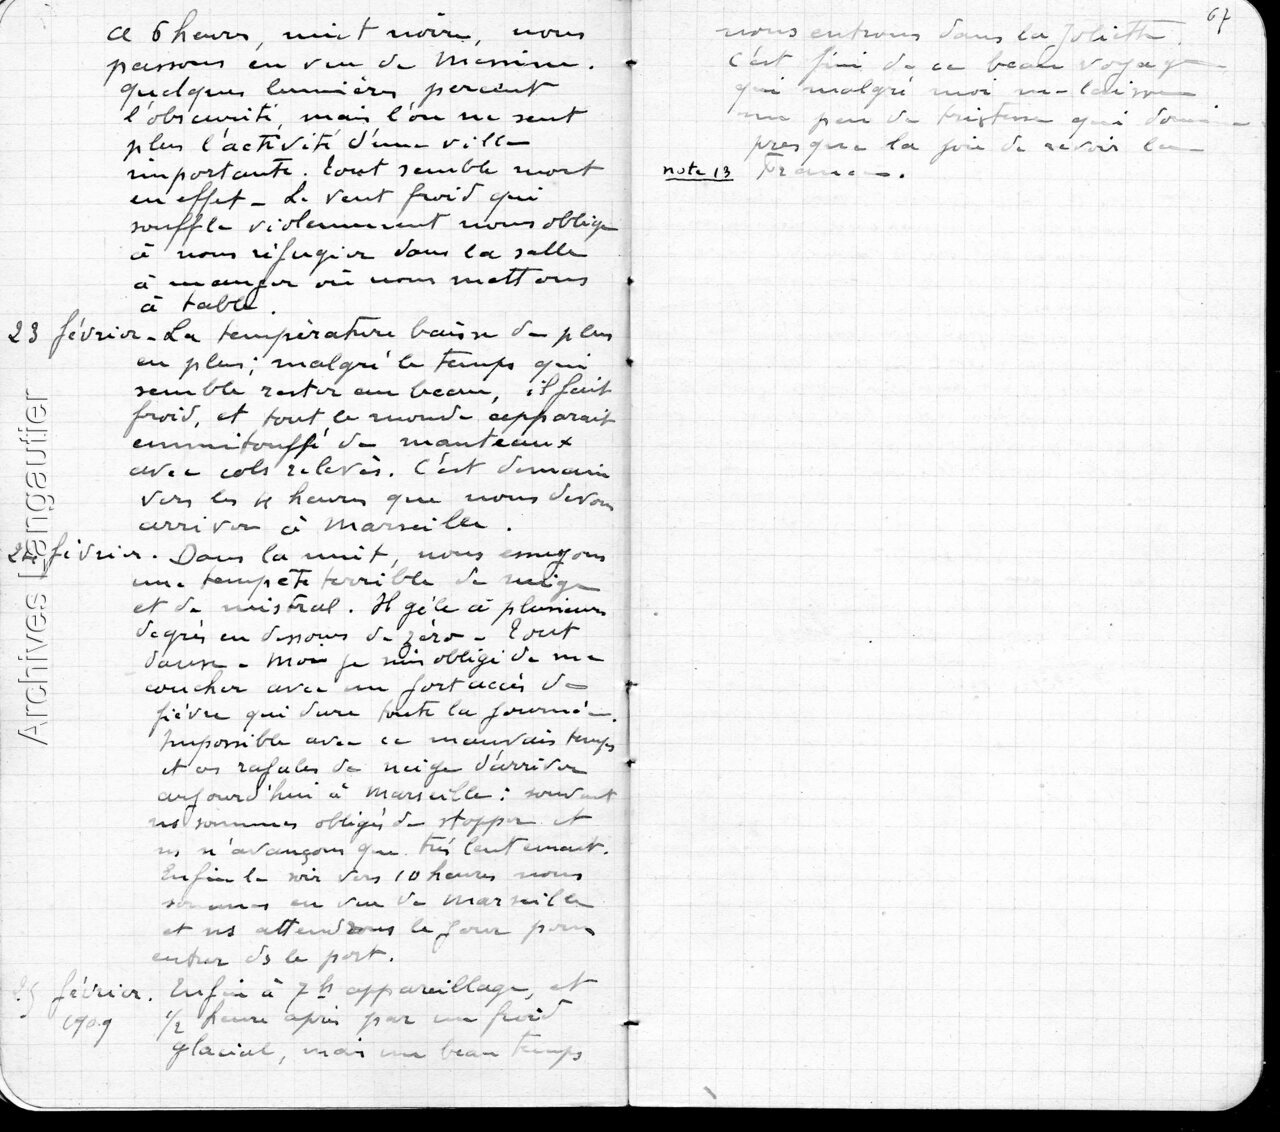 à 6 heures, nuit noire, nous
passons en vue de Messine.
quelques lumières percent
l'obscurité, mais l'on ne sent
plus l'activité d'une ville
importante. Tout semble mort
en effet - Le vent froid qui
souffle violemment nous oblige
à nous réfugier dans la salle
à manger où nous mettons
à table.
23 février - La température baisse de plus
en plus; malgré le temps qui
semble rester au beau, il fait
froid, et tout le monde apparait
emmitouffé de manteaux
avec cols relevés. C'est demain
vers les 4 heures que nous devons
arriver à Marseille.
24 février. Dans la nuit, nous essuyons
une tempête terrible de neige
et de mistral. Il gèle à plusieurs
degrés en dessous de zéro - Tout
danse - Moi je suis obligé de me
coucher avec un fort accès de
fièvre qui dure toute la journée.
Impossible avec ce mauvais temps
et ces rafales de neige d'arriver
aujourd'hui à Marseille: souvent
ns sommes obligés de stopper et
ns n'avançons que très lentement.
Enfin le soir vers 10 heures nous
sommes en vue de Marseille
et ns attendrons le jour pour
entrer ds le port.
25 février. Enfin à 7h appareillage, et
1909 1/2 heure après par un froid
glacial, mais un beau temps
67
nous entrons dans la Joliette.
C'est fini de ce beau voyage
qui malgré moi me laisse
un peu de tristesse qui domine
presque la joie de revoir la
note 13 France.
Archives Langautier